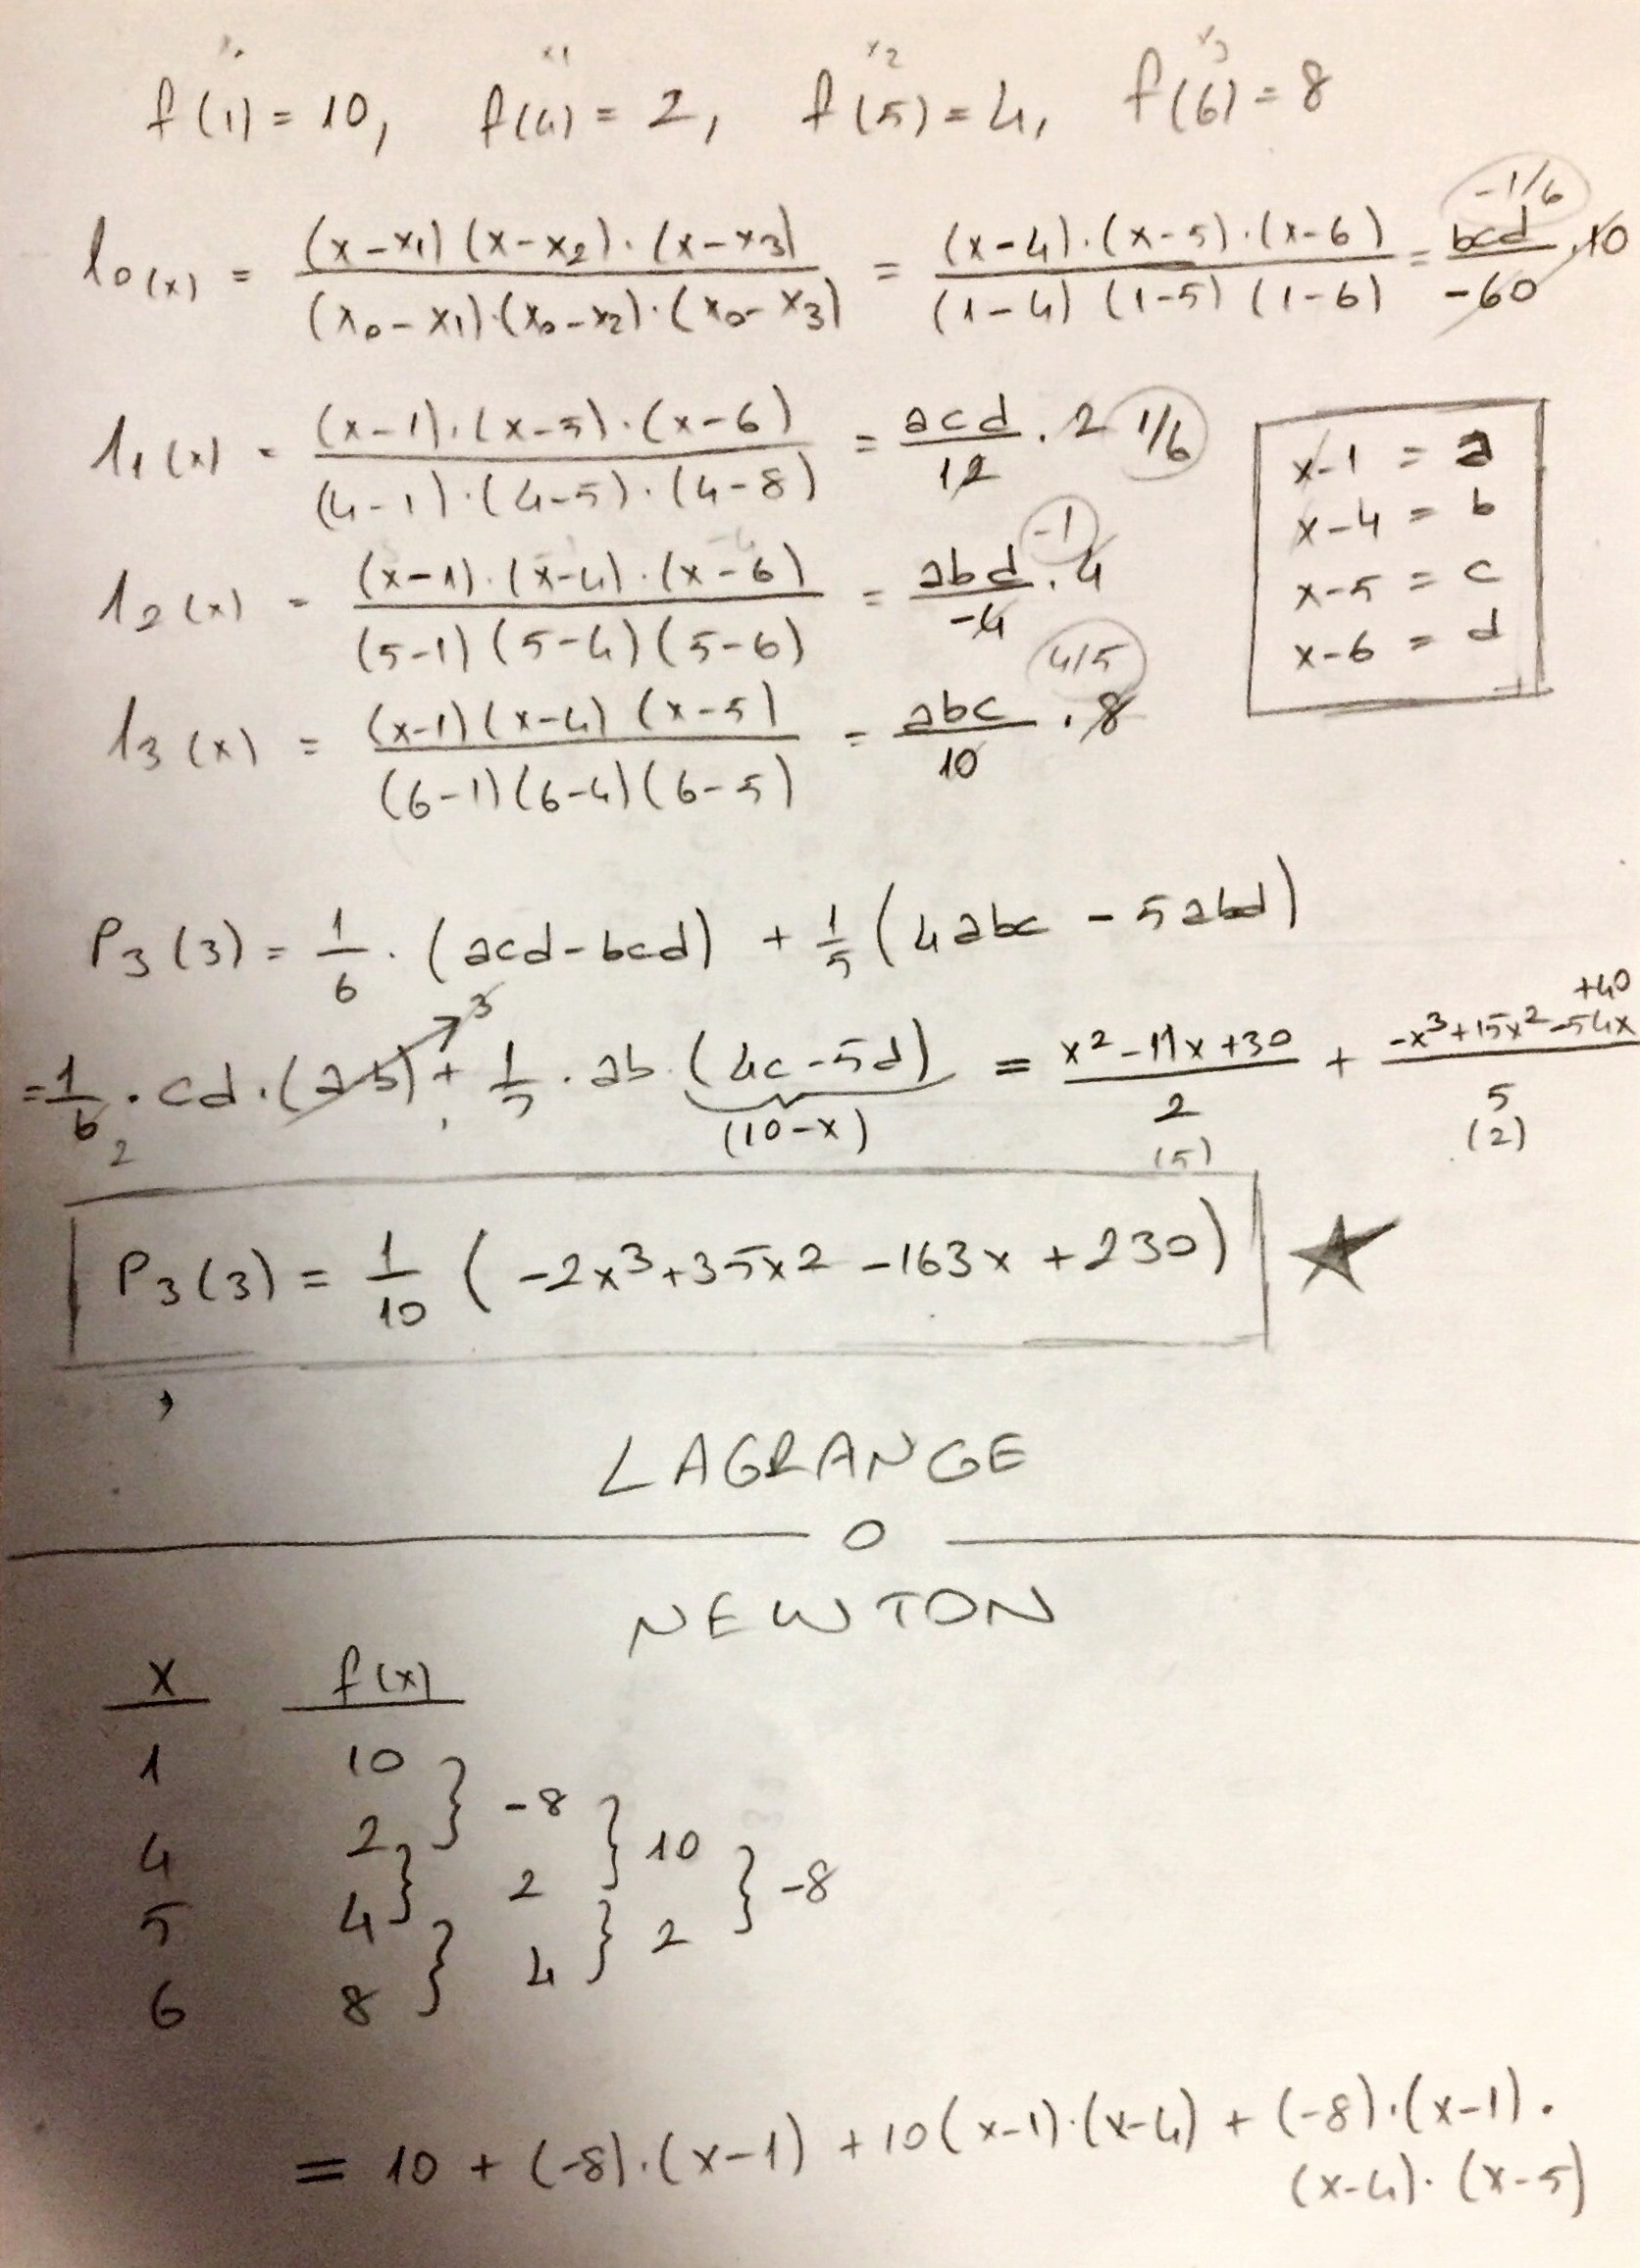 x1 x2 x3
f(1) = 10, f(4) = 2, f(5) = 4, f(6) = 8
l0(x) = (x-x1)(x-x2)·(x-x3) / (x0-x1)·(x0-x2)·(x0-x3) = (x-4)·(x-5)·(x-6) / (1-4)(1-5)(1-6) = bcd / -60 · 10 -1/6
l1(x) = (x-1)·(x-5)·(x-6) / (4-1)·(4-5)·(4-8) = acd / 12 · 2 1/6
l2(x) = (x-1)·(x-4)·(x-6) / (5-1)(5-4)(5-6) = abd / -4 · 4 -1
l3(x) = (x-1)(x-4)(x-5) / (6-1)(6-4)(6-5) = abc / 10 · 8 4/5
x-1 = a
x-4 = b
x-5 = c
x-6 = d
P3(3) = 1/6 · (acd-bcd) + 1/5 (4abc - 5abd)
= 1/6 · cd · (a-b) + 1/5 · ab (4c-5d) = x²-11x+30 / 2 + -x³+15x²-54x+40 / 5
3
2 (10-x) (5) (2)
P3(3) = 1/10 (-2x³+35x²-163x+230) ★
LAGRANGE
0
NEWTON
x f(x)
1 10
} -8
4 2 } 10
} 2 } -8
5 4 } 2
} 4
6 8
= 10 + (-8)·(x-1) + 10(x-1)·(x-4) + (-8)·(x-1)·
(x-4)·(x-5)